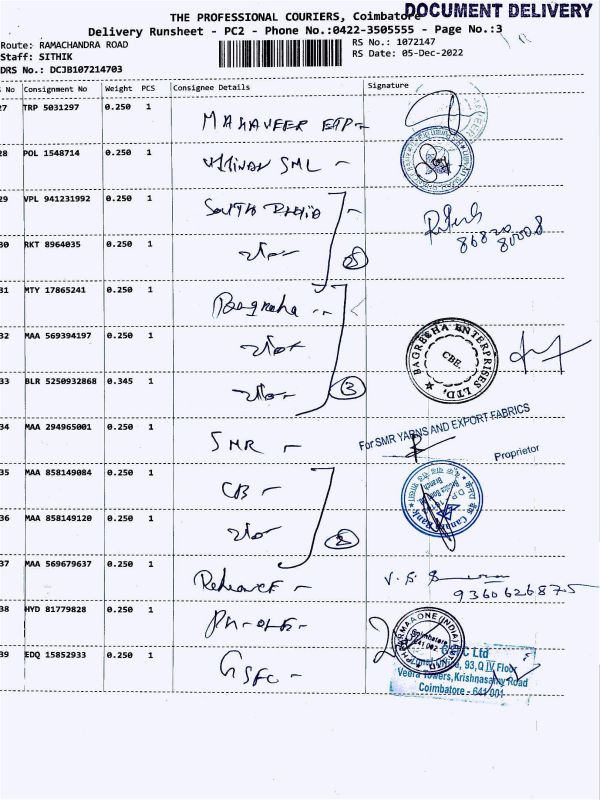 DOCUMENT DELIVERY
THE PROFESSIONAL COURIERS, Coimbatore
Delivery Runsheet - PC2 - Phone No.:0422-3505555 - Page No.:3
Route: RAMACHANDRA ROAD
RS No.: 1072147
Staff: SITHIK
RS Date: 05-Dec-2022
DRS No.: DCJB107214703
No Consignment No Weight PCS Consignee Details Signature
27 TRP 5031297 0.250 1 MAHAVEER
28 POL 1548714 0.250 1 SML
29 VPL 941231992 0.250 1 South
86820 80008
30 RKT 8964035 0.250 1
31 MTY 17865241 0.250 1 Bagreha
32 MAA 569394197 0.250 1
BAGREHA ENTERPRISES LTD.
CBE.
33 BLR 5250932868 0.345 1 3
34 MAA 294965001 0.250 1 SMR
For SMR YARNS AND EXPORT FABRICS
Proprietor
35 MAA 858149084 0.250 1 CB
Canara Bank
36 MAA 858149120 0.250 1 2
37 MAA 569679637 0.250 1 Reliance
9360626875
38 HYD 81779828 0.250 1
PHARMAONE (INDIA)
Coimbatore
641 002
39 EDQ 15852933 0.250 1 GSFC
Ltd
93, Q IV Floor
Veera Towers, Krishnasamy Road
Coimbatore - 641 001